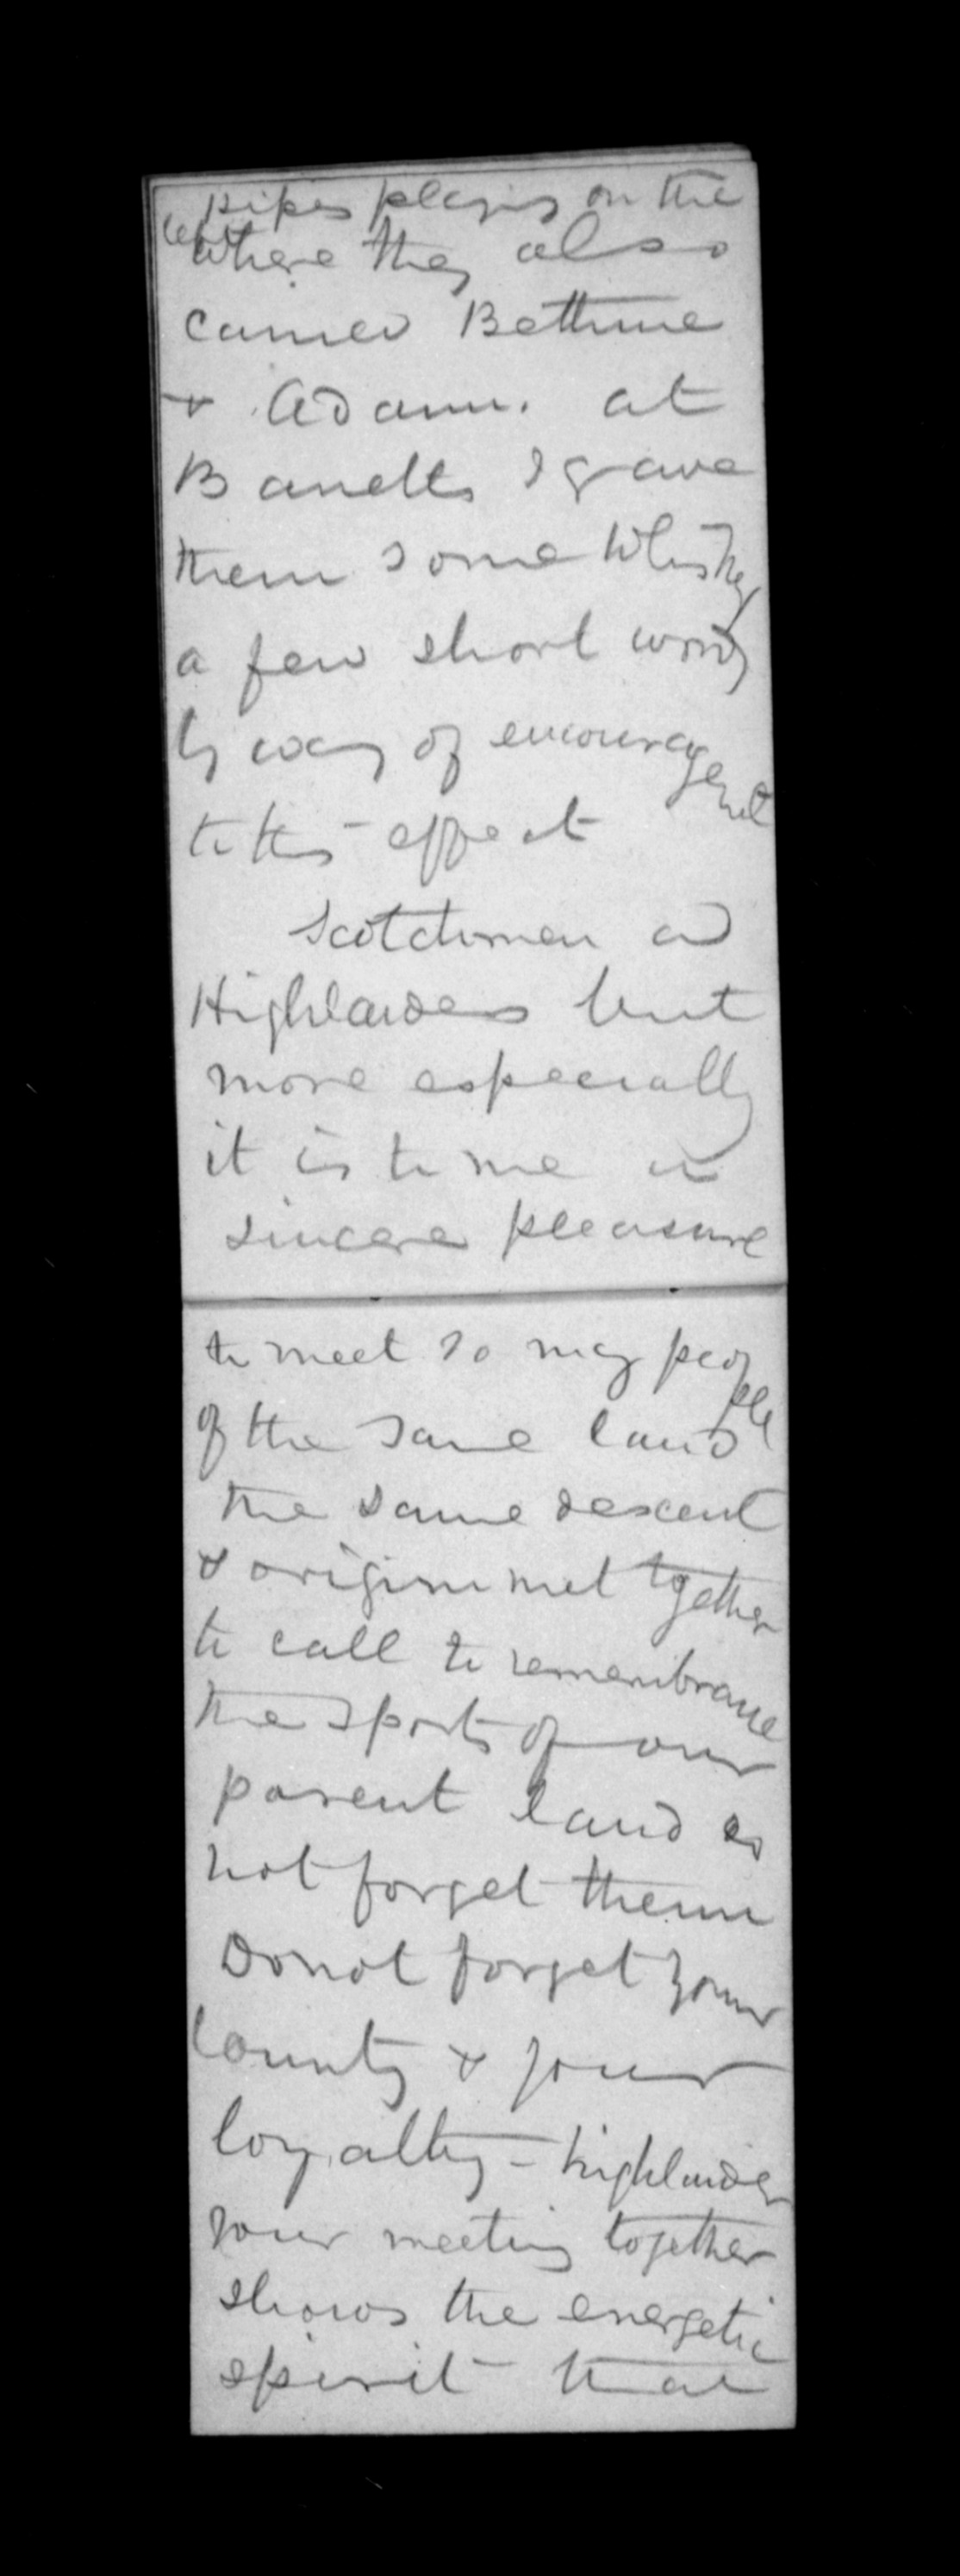 pipes playing on the
where they also
carried Bethune
& Adam. at
Banetts I gave
them some Whiskey
a few short words
by way of encouragement
to this - effect
Scotchmen and
Highlanders but
more especially
it is to me a
sincere pleasure
to meet so many people
of the same land
the same descent
& origin met together
to call to remembrance
the sports of our
parent land do
not forget them
Do not forget your
County & your
loyalty - highlander
your meeting together
shows the energetic
spirit that